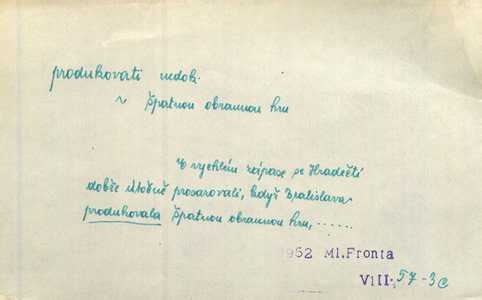 produkovati nedok.
~ špatnou obrannou hru
V rychlém zápase se Hradečtí
dobře útočně prosazovali, když Bratislava
produkovala špatnou obrannou hru, ......
1952 Ml.Fronta
VIII. 57-3c